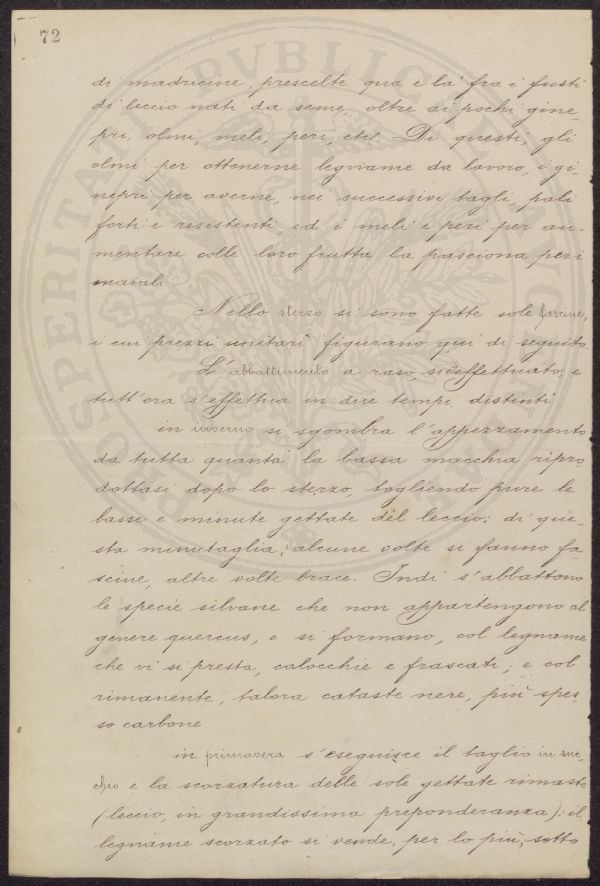 72
di madricine, prescelte qua e là fra i fusti
di leccio nati da seme oltre ai pochi gine-
pri, olmi, meli, peri, etc. Di questi, gli
olmi per ottenerne legname da lavoro, i gi-
nepri per averne, nei successivi tagli, pali
forti e resistenti, ed i meli e peri per au-
mentare colle loro frutta la pasciona pei
maiali.
Nello sterzo si sono fatte sole fascine,
i cui prezzi unitari figurano qui di seguito
L'abbattimento a raso, si è effettuato, e
tutt'ora s'effettua in due tempi distinti
in inverno si sgombra l'appezzamento
da tutta quanta la bassa macchia ripro-
dottasi dopo lo sterzo, togliendo pure le
basse e minute gettate del leccio: di que-
sta minutaglia, alcune volte si fanno fa-
scine, altre volte brace. Indi s'abbattono
le specie silvane che non appartengono al
genere quercus, e si formano, col legname
che vi si presta, calocchie e frascati; e col
rimanente, talora cataste nere, più spes-
so carbone
in primavera s'eseguisce il taglio in suc-
chio e la scorzatura delle sole gettate rimaste
(leccio, in grandissima preponderanza): il
legname scorzato si vende, per lo più, sotto
PROSPERITATI PUBLICAE AUGENDAE